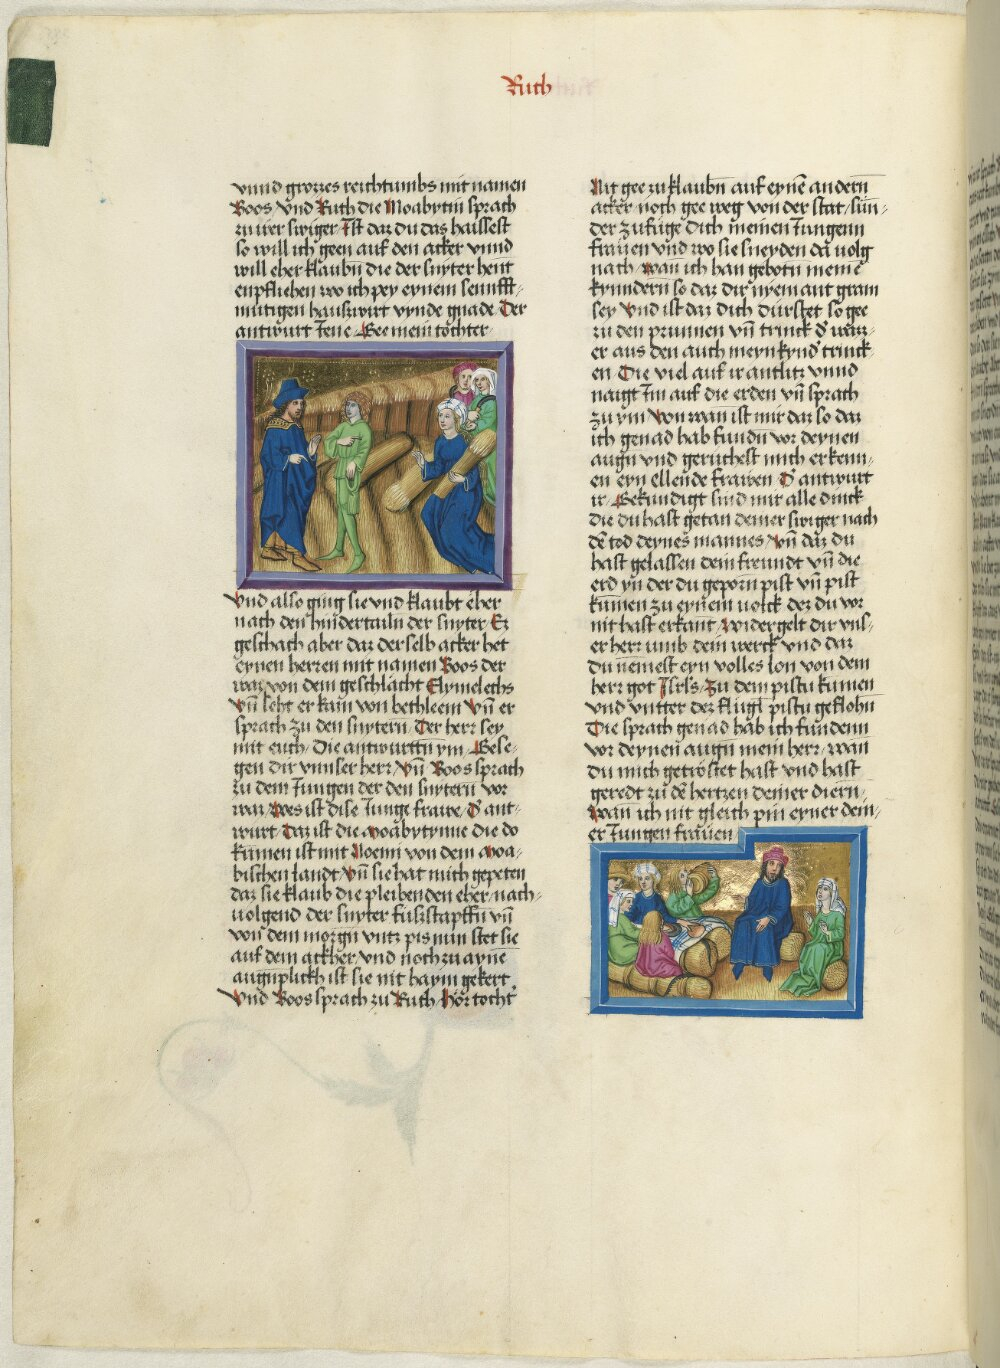 Ruth
vnnd grozzes reichtumbs mit namen
Boos / vnd Ruth die Moabytin sprach
zu irer swiger / Ist daz du das haissest
so will ich geen auf den acker vnnd
will eher klaubn die der snyter hent
enpfliehen wo ich pey eynem sennfft=
mutigen hauszwirt vynde gnade Der
antwurt Jene / Gee mein tochter
vnd also ging sie vnd klaubt eher
nach den hindertailn der snyter / Ez
geschach aber daz der selb acker het
eynen herren mit namen Boos der
waz von dem geschlächt Elymelechs
Vn̄ seht er kam von bethleem / Vn̄ er
sprach zu den snytern / Der herr sey
mit euch / Die antwurttn ym / Gese=
gen dir vnnser herr / Vn̄ Boos sprach
zu dem Jungen der den snytern vor
waz / Wes ist dise Junge frawe / D̕ ant=
wurt Daz ist die Moabytynne die do
kumen ist mit Noemi von dem Moa=
bischen lanndt / Vn̄ sie hat mich gepeten
daz sie klaub die pleibenden eher / nach=
uolgend der snyter fuszstapffn vn̄
von dem morgn vntz pis nun stet sie
auf dem ackher / vnd noch zu ayne
augnplickh ist sie nit haym gekert
Vnd Boos sprach zu Ruth / Hör tocht̕
Nit gee zu klaubn auf eynē andern
acker noch gee weg von der stat / sun=
der zufüge dich meinen Jungenn
frauen vnd wo sie sneyden da uolg
nach / wan ich han gebotn meinē
kynndern so daz dir nyemant gram
sey / Vnd ist daz dich dürstet so gee
zu den prunnen vn̄ trinck d̕ wazz=
er aus den auch meyn kynd trinck=
en Die viel auf ir antlitz vnnd
naigt sich auf die erden vn̄ sprach
zu ym / Von wan ist mir daz so daz
ich genad hab fundn vor deynen
augn vnd geruchest mich erkenn=
en eyn ellende frawen D̕ antwurt
ir Gekundigt sind mir alle dinck
die du hast getan deiner swiger nach
dē tod deynes mannes / vn̄ daz du
hast gelassen dein freundt vn̄ die
erd yn der du geporn pist vn̄ pist
kumen zu eynem uolck dez du vor
nit hast erkant / Widergelt dir vns=
er herr umb dein werck vnd daz
du nemest eyn volles lon von dem
herr got Jsrl's / Zu dem pistu kumen
vnd vntter dez flügl pistu geflohn
Die sprach genad hab ich fundenn
vor deynen augn mein herr / wan
du mich getröstet hast vnd hast
geredt zu dē hertzen deiner diern /
wan ich nit gleich pin eyner dein=
er Jungen frauen